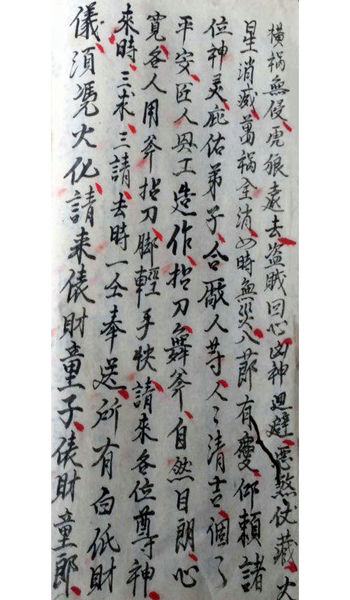 橫禍無侵虎狼遠去盜賊回心凶神迴避惡煞伏藏火
星消滅萬禍全消四時無災八節有慶仰賴諸
位神灵庇佑弟子合厰人芋人〻清吉個〻
平安匠人興工造作拈刀舞斧自然目朗心
寬各人用斧拈刀脚輕手快請來各位尊神
來時三来三請去時一仝奉送所有白紙財
儀須凴火化請来俵財童子俵財童郎